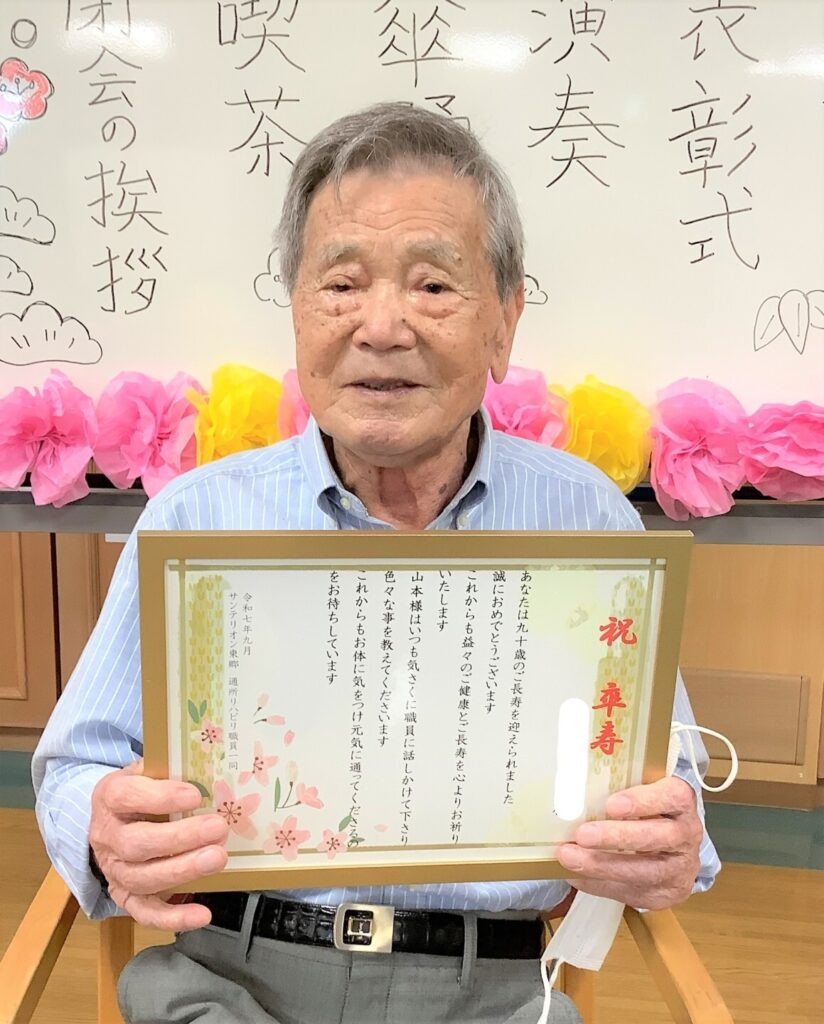 表彰式
演奏
傘踊
喫茶
閉会の挨拶
祝 卒寿
あなたは九十歳のご長寿を迎えられました
誠におめでとうございます
これからも益々のご健康とご長寿を心よりお祈り
いたします
山本様はいつも気さくに職員に話しかけて下さり
色々な事を教えてくださいます
これからもお体に気をつけ元気に通ってくださるの
をお待ちしています
令和七年九月
サンテリオン東郷 通所リハビリ職員一同